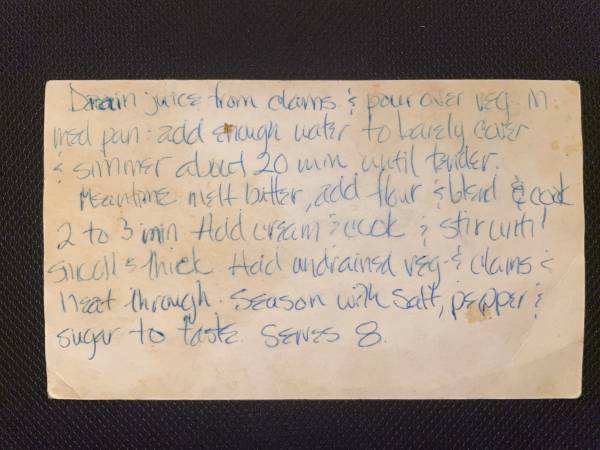 Drain juice from clams & pour over veg. in
med pan. add enough water to barely cover
& simmer about 20 min until tender.
Meantime melt butter, add flour & blend & cook
2 to 3 min Add cream & cook & stir until
& thick Add undrained veg. & clams &
heat through. Season with Salt, pepper &
sugar to taste. Serves 8.